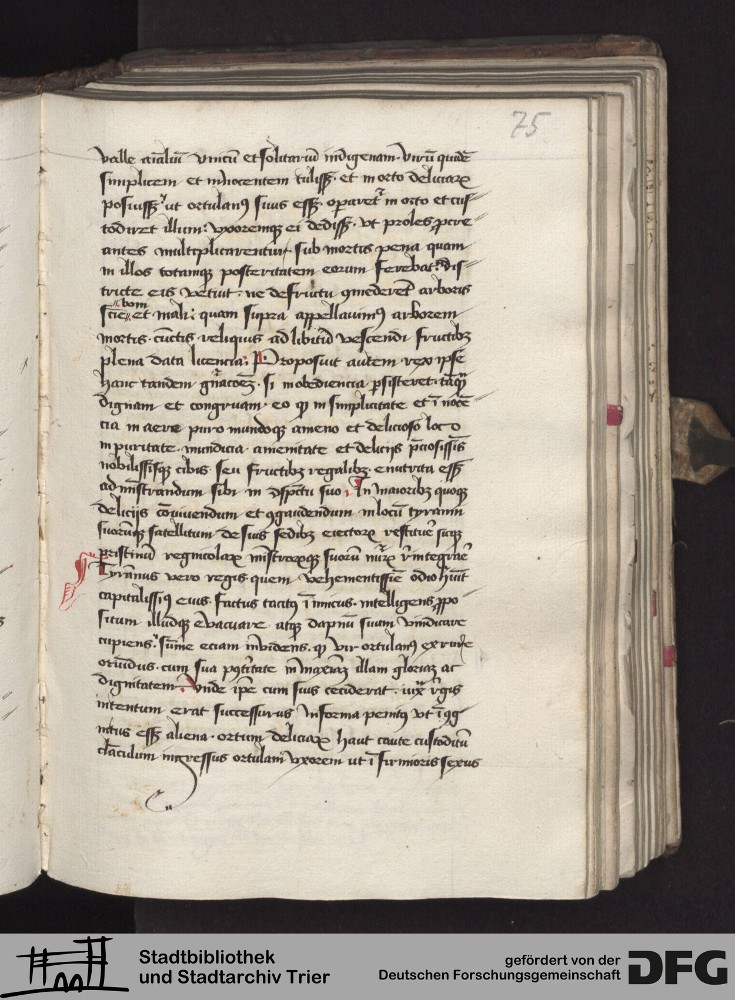 75
valle unicu et solitariu indigenam viru quide
simplicem et innocentem tuliss et in orto deliciarx
posuiss ut ortulan9 suus ess operaret in orto et cus
todiret illum: uxoremq ei dediss vt proles pcre
antes multiplicarentur sub mortis pena quam
in illos totamq posteritatem eorum ferebat Dis
tricte eis vetuit ne de fructu 9mederet arboris
scie boni et mali: quam supra appellauim9 arborem
mortis cunctis reliquis ad libitu vescendi fructib3
plena data licencia: Proposuit autem rex ipse
hanc tandem gnacoem si in obediencia psisteret
dignam et congruam eo q in simplicitate et i noce
cia in aere puro mundoq ameno et delicioso loco
in puritate mundicia amenitate et delicijs pciosissis
nobilissisq cibis seu fructib3 regalib3 enutrita ess
ad mistrandum sibi in 9spctu suo In maiorib3 quoq
delicijs couiuendum et 9gaudendum in locu tyranni
suorumq satellitum de suis sedib3 eiectorx restitue
pristinu regnicolarx mistrorxq suoru redintegrae
Tyrannus vero regis quem vehementissie odio huit
capitalissi9 eius factus tacit9 inimicus intelligens ppo
situm illudq euacuare atq dapnu suum vindicare
cupiens sume eciam inuidens q vir ortulan9 ex
oriudus cum sua pgritate in maxia illam gloria ac
dignitatem Unde ipe cum suis ceciderat iux regis
intentum erat successurus In forma penit9 vt i9g
nitus ess aliena ortum deliciarx haut caute custoditu
ingressus ortulani vxorem ut i firmioris sexus
Stadtbibliothek
und Stadtarchiv Trier
gefördert von der
Deutschen Forschungsgemeinschaft
DFG